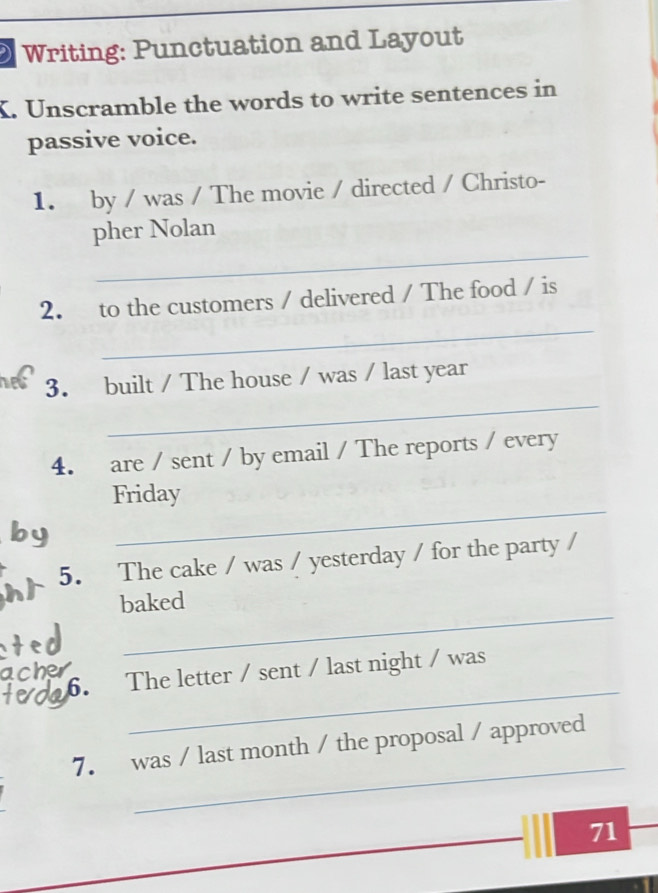 Writing: Punctuation and Layout
K. Unscramble the words to write sentences in
passive voice.
1. by / was / The movie / directed / Christo-
pher Nolan
2. to the customers / delivered / The food / is
3. built / The house / was / last year
4. are / sent / by email / The reports / every
Friday
by
5. The cake / was / yesterday / for the party /
baked
cted
acher
terday
6. The letter / sent / last night / was
7. was / last month / the proposal / approved
71